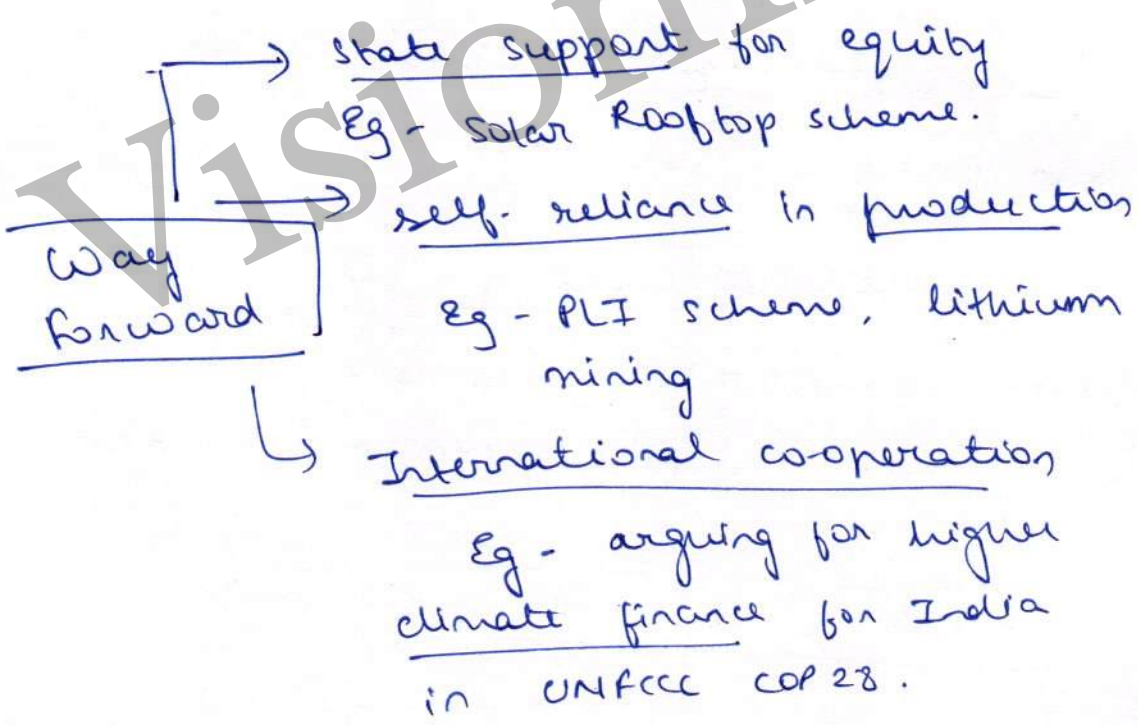 state support for equity
Eg - solar Rooftop scheme.
self-reliance in production
Way
Forward
Eg - PLI scheme, lithium
mining
International co-operation
Eg - arguing for higher
climate finance for India
in UNFCCC COP 28.
Vision